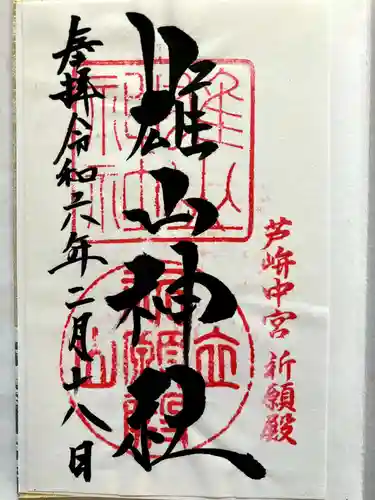 芦峅中宮 祈願殿
雄山神社
奉拝 令和六年二月十八日